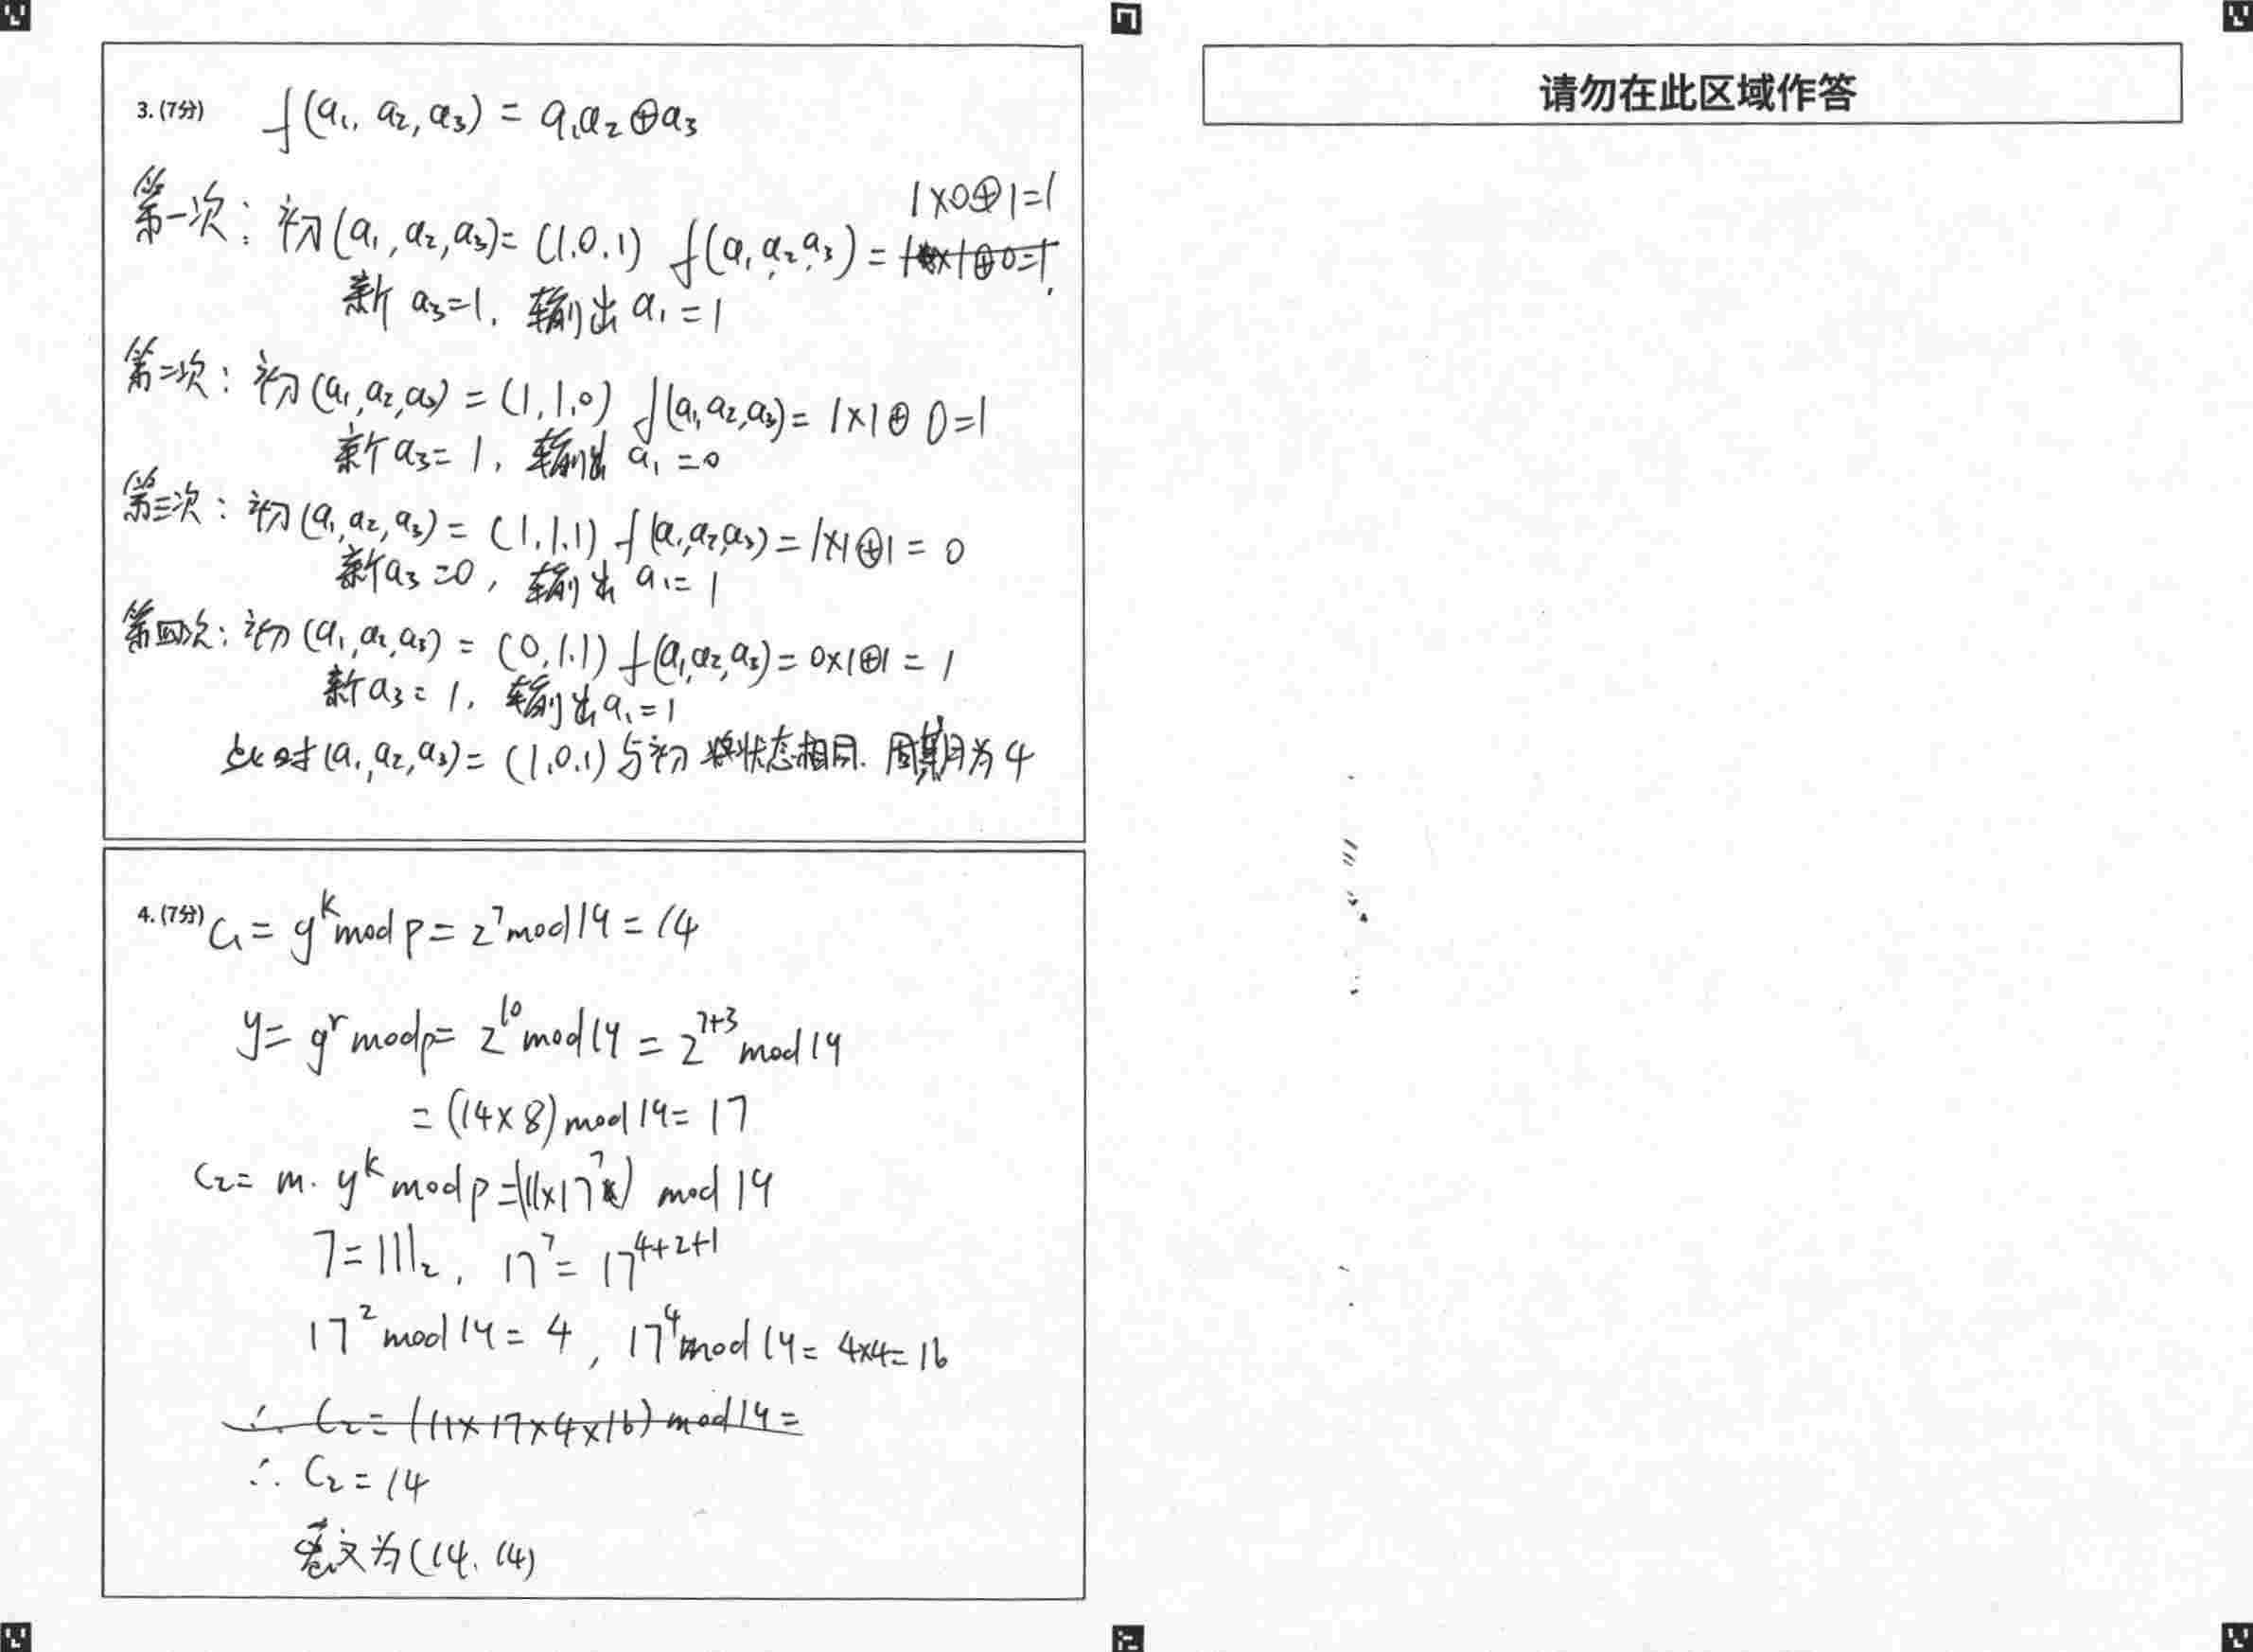 请勿在此区域作答
3. (7分) f(a₁, a₂, a₃) = a₁a₂⊕a₃
1×0⊕1=1
第一次: 初(a₁, a₂, a₃)= (1.0.1) f(a₁,a₂,a₃) = 1×1⊕0=1
新 a₃=1, 输出 a₁ = 1
第二次: 初(a₁,a₂,a₃) = (1,1.0) f(a₁,a₂,a₃)= 1×1⊕0=1
新a₃= 1, 输出 a₁ =0
第三次: 初(a₁,a₂,a₃)= (1.1.1) f(a₁,a₂,a₃)=1×1⊕1= 0
新a₃=0, 输出 a₁= 1
第四次: 初(a₁,a₂,a₃) = (0,1.1) f(a₁,a₂,a₃)= 0×1⊕1= 1
新a₃= 1, 输出a₁=1
此时(a₁,a₂,a₃)= (1.0.1)与初始状态相同. 周期为4
4. (7分) C₁= gᵏmod p= 2⁷mod19=14
y= gʳmodp= 2¹⁰mod19 = 2⁷⁺³mod19
= (14×8)mod19= 17
C₂= m. yᵏmodp=(11×17⁷) mod 19
7=111₂, 17⁷= 17⁴⁺²⁺¹
17²mod19= 4, 17⁴mod19= 4×4=16
∴ C₂= (11×17×4×16) mod19=
∴ C₂=14
密文为(14, 14)